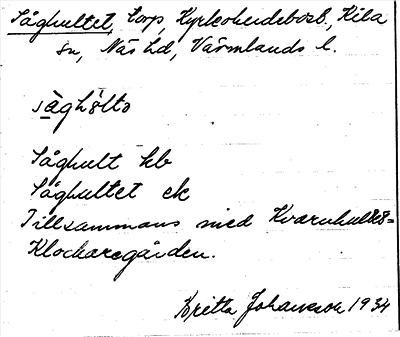 Såghultet, torp, Kyrkoheidebost., Kila
sn, Näs hd, Värmlands l.
sàghölto
Såghult kb
Såghultet ek
Tillsammans med Kvarnhultet=
Klockaregården.
Britta Johansson 1934